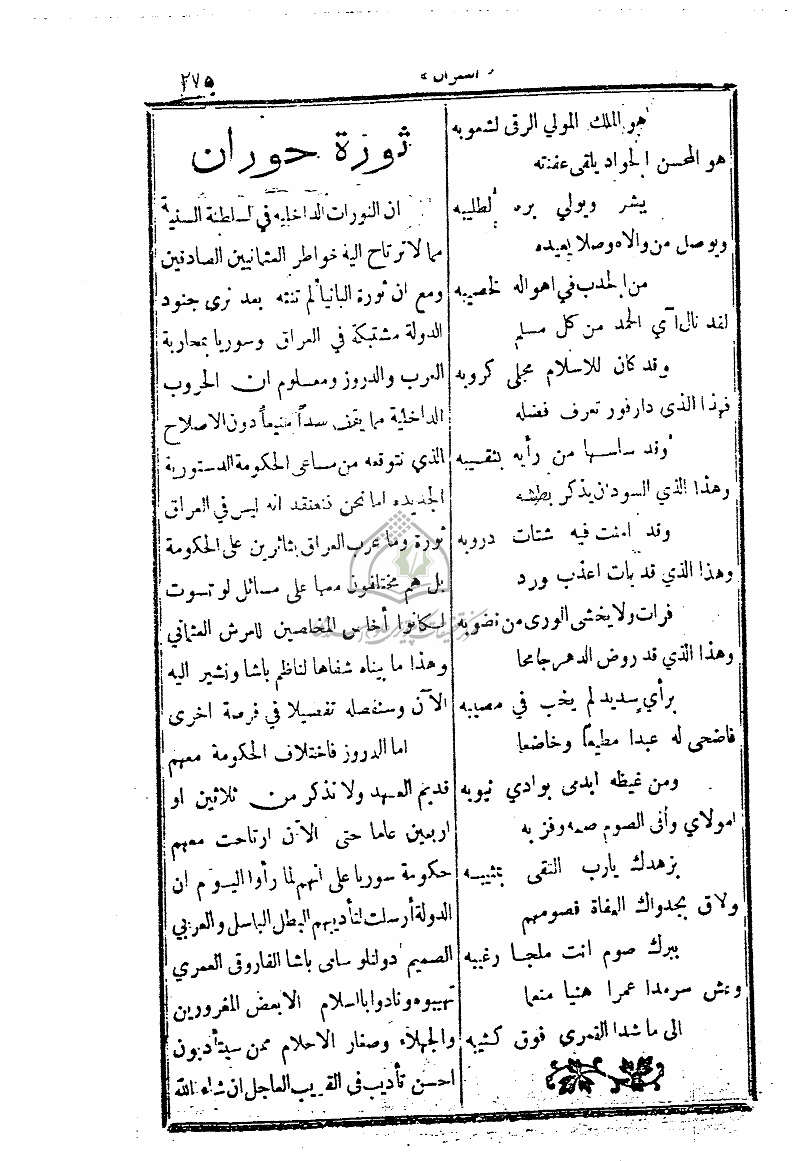 « العمران »
٢٧٥
هو الملك المولي الرقى لشعوبه
هو المحسن الجواد يلقى عفنته
يشر ويولي بره لطليبه
ويوصل من والاه وصلا بعيده
من الجدب في اهواله لخصيبه
لقد نال آي الحمد من كل مسلم
وقد كان للاسلام مجلى كروبه
فهذا الذي دارفور تعرف فضله
وقد ساسها من رأيه بنقيبه
وهذا الذي السودان يذكر بطشه
وقد امنت فيه شتات دروبه
وهذا الذي قد بات اعذب ورد
فرات ولا يخشى الورى من نضوبه
وهذا الذي قد روض الدهر جامحا
برأي سديد لم يخب في مصيبه
فاضحى له عبدا مطيعا وخاضعا
ومن غيظه ابدى بوادي نيوبه
امولاي وأنى الصوم صمه وفز به
بزهدك يارب التقى بمثيبه
ولاق بجدواك العفاة فصومهم
ببرك صوم انت ملجا رغيبه
وعش سرمدا عمرا هنيا منعما
الى ما شدا القمري فوق كثيبه
ثورة حوران
ان الثورات الداخليه في السلطنة السنية
مما لا ترتاح اليه خواطر العثمانيين الصادقين
ومع ان ثورة البانيا لم تنته بعد نرى جنود
الدولة مشتبكة في العراق وسوريا بمحاربة
العرب والدروز ومعلوم ان الحروب
الداخلية مما يقف سداً منيعاً دون الاصلاح
الذي نتوقعه من مساعى الحكومة الدستورية
الجديده اما نحن فنعتقد انه ليس في العراق
ثورة وما عرب العراق بثائرين على الحكومة
بل هم مختلفون معها على مسائل لو تسوت
لكانوا أخلص المخلصين للعرش العثماني
وهذا ما بيناه شفاها لناظم باشا ونشير اليه
الآن وسنفصله تفصيلا في فرصة اخرى
اما الدروز فاختلاف الحكومة معهم
قديم العهد ولا نذكر من ثلاثين او
اربعين عاما حتى الآن ارتاحت معهم
حكومة سوريا على انهم لما رأوا اليوم ان
الدولة أرسلت لتأديبهم البطل الباسل والعربي
الصميم دولتلو سامى باشا الفاروقى العمري
تهيبوه ونادوا باسلام الا بعض المغرورين
والجهلاء وصغار الاحلام ممن سيتأدبون
احسن تأديب في القريب العاجل ان شاء الله